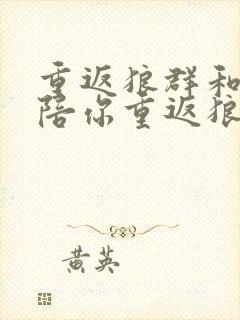 重返狼群和
陪你重返狼
黄英